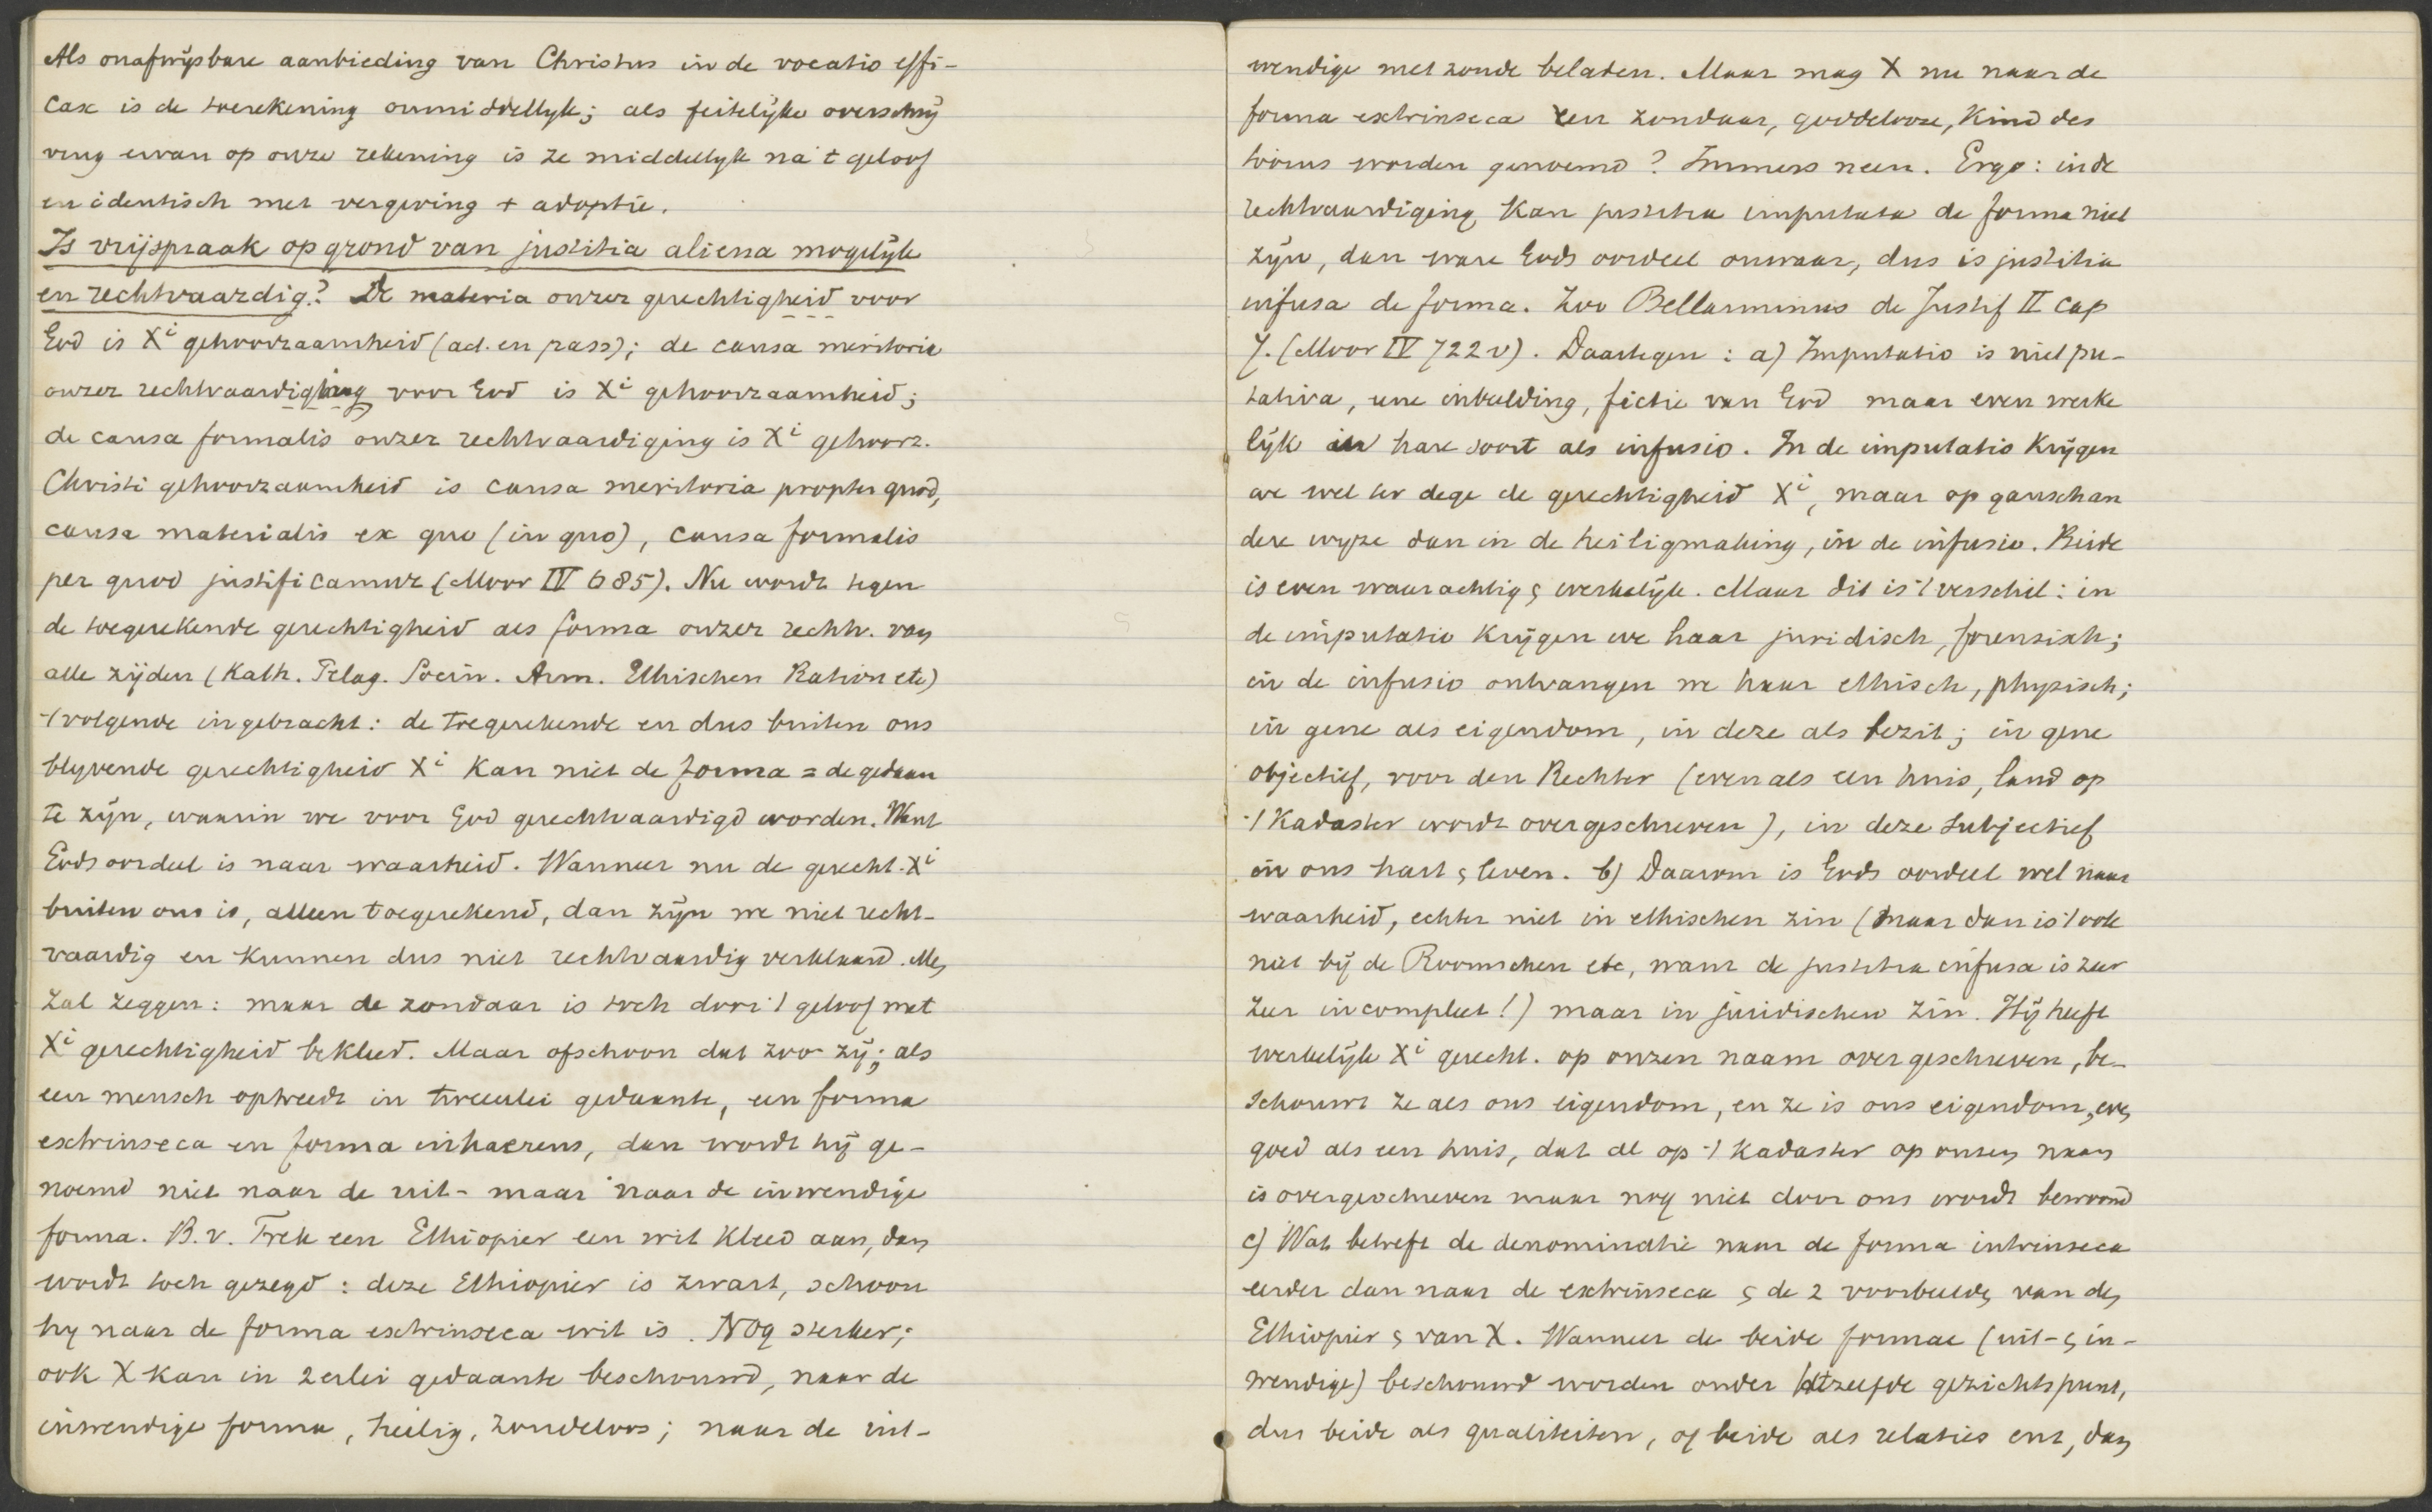 Als onafwijsbare aanbieding van Christus in de vocatio effi-
cax is de toerekening onmiddellyk; als feitelijke overschrij
ving ervan op onze rekening is ze middellyk na 't geloof
en identisch met vergeving + adoptie.
Is vrijspraak op grond van justitia aliena mogelijk
en rechtvaardig? De materia onzer gerechtigheid voor
God is Xi gehoorzaamheid (act. en pass); de causa meritoria
onzer rechtvaardiging voor God is Xi gehoorzaamheid;
de causa formalis onzer rechtvaardiging is Xi gehoorz.
Christi gehoorzaamheid is causa meritoria propter quod,
causa materialis ex quo (in quo), causa formalis
per quod justificamur (Moor IV 685). Nu wordt tegen
de toegerekende gerechtigheid als forma onzer rechtv. van
alle zijden (Kath. Pelag. Socin. Arm. Ethischen Ration etc)
't volgende ingebracht: de toegerekende en dus buiten ons
blyvende gerechtigheid Xi kan niet de forma = de gedaan
te zijn, waarin we voor God gerechtvaardigd worden. Want
Gods oordeel is naar waarheid. Wanneer nu de gerecht. Xi
buiten ons is, alleen toegerekend, dan zijn we niet recht-
vaardig en kunnen dus niet rechtvaardig verklaard. Men
zal zeggen: maar de zondaar is toch door 't geloof met
Xi gerechtigheid bekleed. Maar ofschoon dat zoo zij; als
een mensch optreedt in tweeerlei gedaante, een forma
extrinseca en forma inhaerens, dan wordt hij ge-
noemd niet naar de uit- maar naar de inwendige
forma. B.v. Trek een Ethiopier een wit kleed aan, dan
wordt toch gezegd: deze Ethiopier is zwart, schoon
hy naar de forma extrinseca wit is. Nog sterker;
ook X kan in 2erlei gedaante beschouwd, naar de
inwendige forma, heilig, zondeloos; naar de uit-
wendige met zonde beladen. Maar mag X nu naar de
forma extrinseca een zondaar, goddelooze, kind des
toorns worden genoemd? Immers neen. Ergo: in de
rechtvaardiging kan justitia imputata de forma niet
zijn, dan ware Gods oordeel onwaar, dus is justitia
infusa de forma. Zoo Bellarminus de Justif II cap
7. (Moor IV 722 v). Daartegen: a) Imputatio is niet pu-
tativa, eene inbeelding, fictie van God maar even werke
lijk in hare soort als infusio. In de imputatio krijgen
we wel ter dege de gerechtigheid Xi, maar op gansch an
dere wyze dan in de heiligmaking, in de infusio. Beide
is even waarachtig & werkelijk. Maar dit is 't verschil: in
de imputatio krijgen we haar juridisch, forensisch;
in de infusio ontvangen we haar ethisch, physisch;
in gene als eigendom, in deze als bezit; in gene
objectief, voor den Rechter (evenals een huis, land op
't Kadaster wordt overgeschreven), in deze subjectief
in ons hart & leven. b) Daarom is Gods oordeel wel naar
waarheid, echter niet in ethischen zin (maar dan is 't ook
niet bij de Roomschen etc, want de justitia infusa is zeer
zeer incompleet!) maar in juridischen zin. Hij heeft
werkelijk Xi gerecht. op onzen naam overgeschreven, be-
schouwt ze als ons eigendom, en ze is ons eigendom, even
goed als een huis, dat al op 't Kadaster op onzen naam
is overgeschreven maar nog niet door ons wordt bewoond
c) Wat betreft de denominatie naar de forma intrinseca
eerder dan naar de extrinseca & de 2 voorbeelden van den
Ethiopier & van X. Wanneer de beide formae (uit- & in-
wendige) beschouwd worden onder hetzelfde gezichtspunt,
dus beide als qualiteiten, of beide als relaties enz, dan